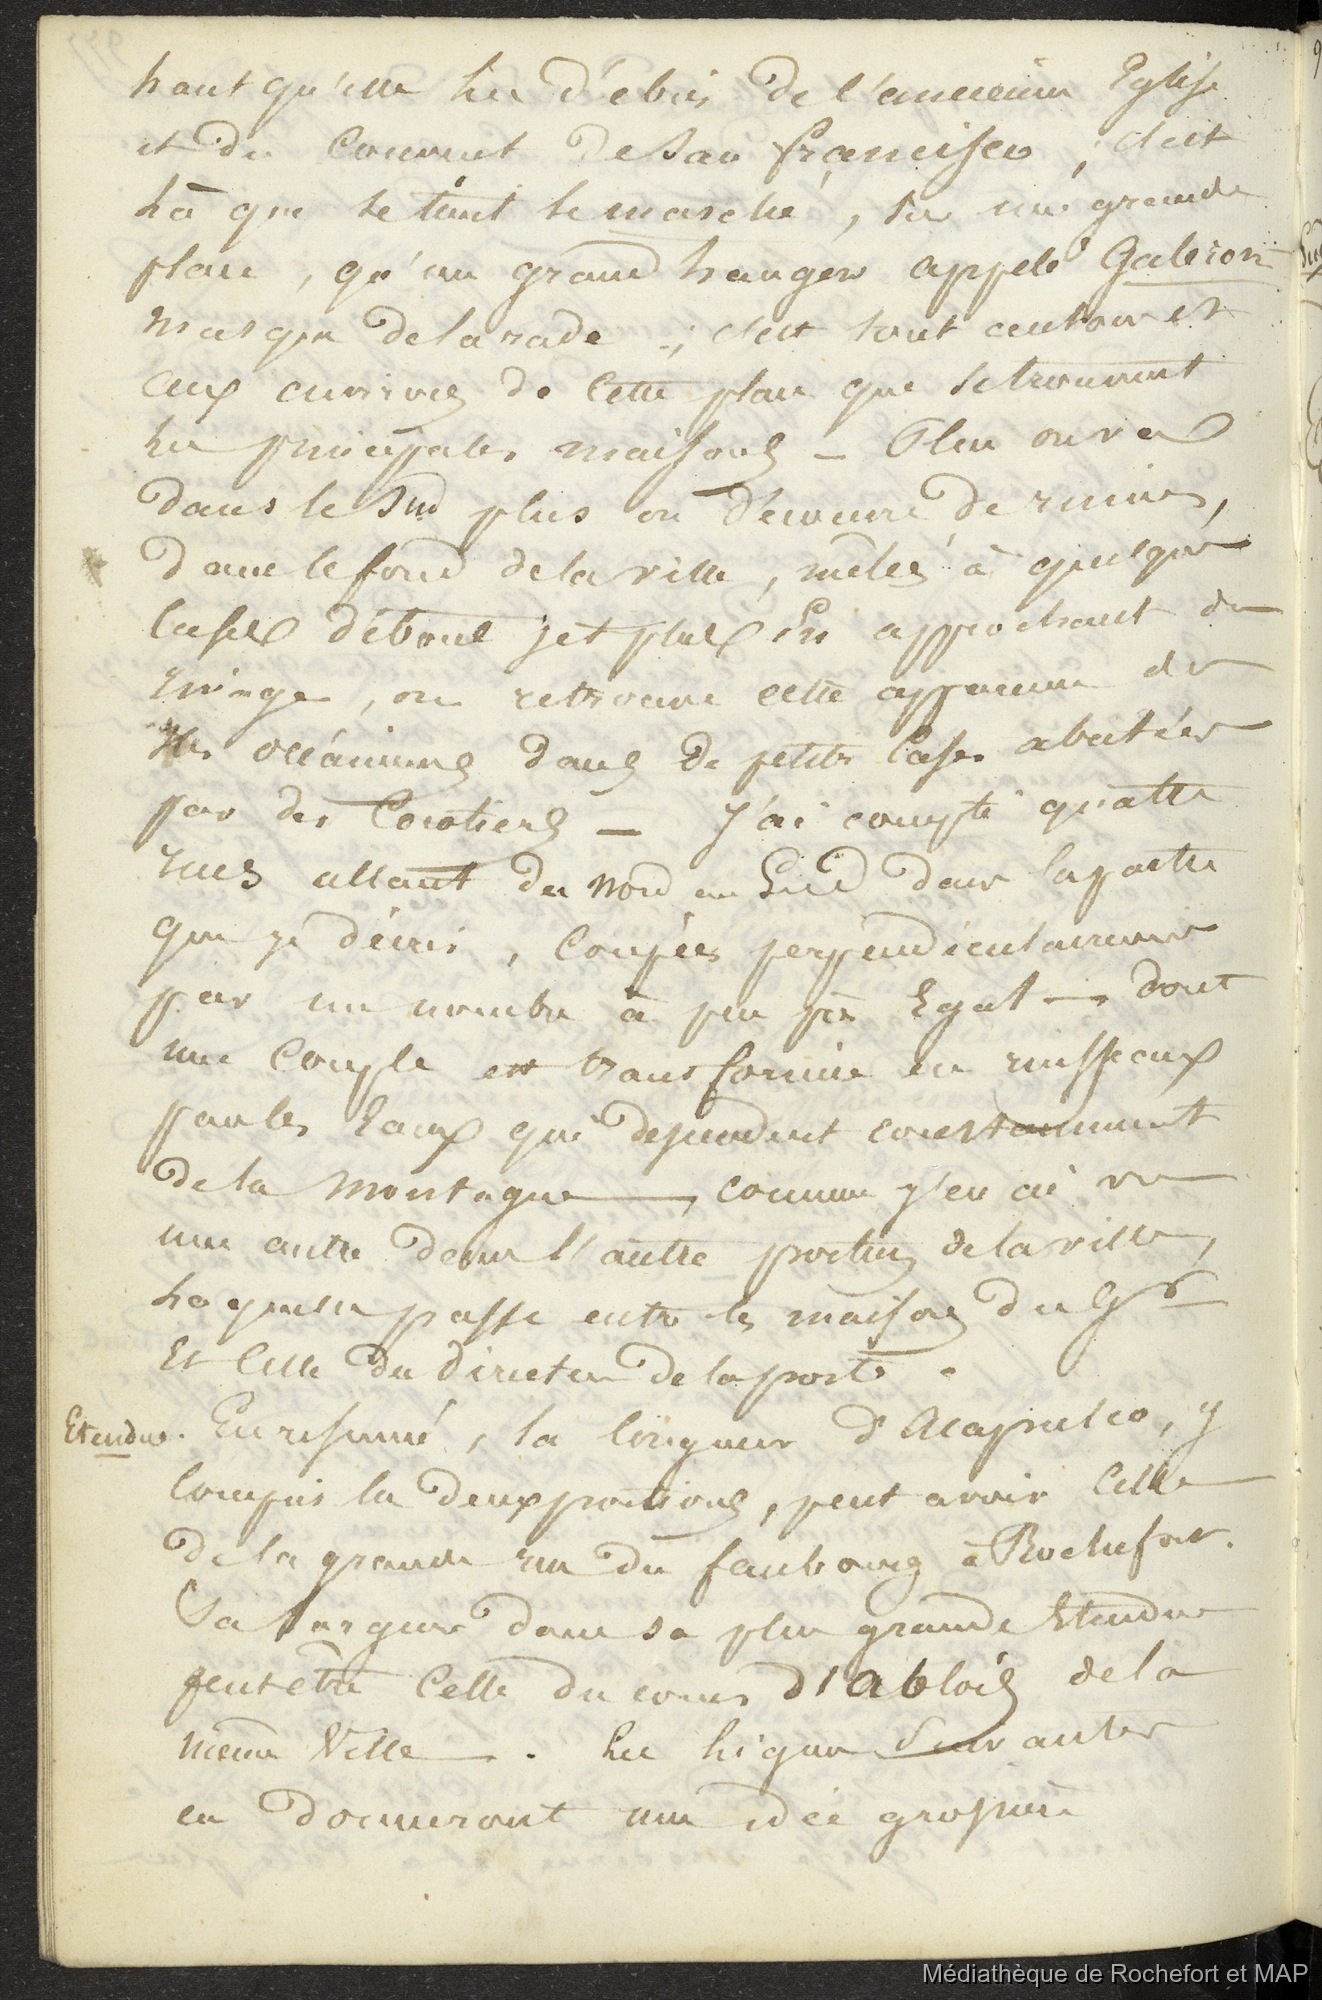 haut qu'elle les débris de l'ancienne Eglise
et du Couvent de San francisco ; c'est
là que se tient le marché, sur une grande
place, qu'un grand hangar appelé Galeron
masque de la rade ; c'est tout autour et
aux environs de Cette place que se trouvent
les principales maisons – Plus on va
dans le Sud plus on découvre de ruines,
dans le fond de la ville, mêlées à quelques
Cases debout, et plus En approchant du
rivage, on retrouve cette apparence des
îles océaniennes dans de petites Cases abritées
par des Cocotiers — J'ai compté quatre
rues allant du Nord au Sud dans la partie
que je décris, Coupées perpendiculairement
par un nombre à peu près Egal – dont
une Couple est transformée en ruisseaux
par les Eaux qui descendent constamment
de la Montagne, comme j'en ai vu
une autre dans l'autre portion de la ville,
laquelle passe entre les maisons du Gr
Et Celle du Directeur de la poste.
Etendue. En résumé, la longueur d'Acapulco, y
Compris les deux portions, peut avoir Celle
de la grande rue du faubourg à Rochefort.
Sa largeur dans sa plus grande Etendue
peut être Celle du cours d'Ablois de la
même Ville. Les lignes Suivantes
en donneront une idée grossière
Médiathèque de Rochefort et MAP